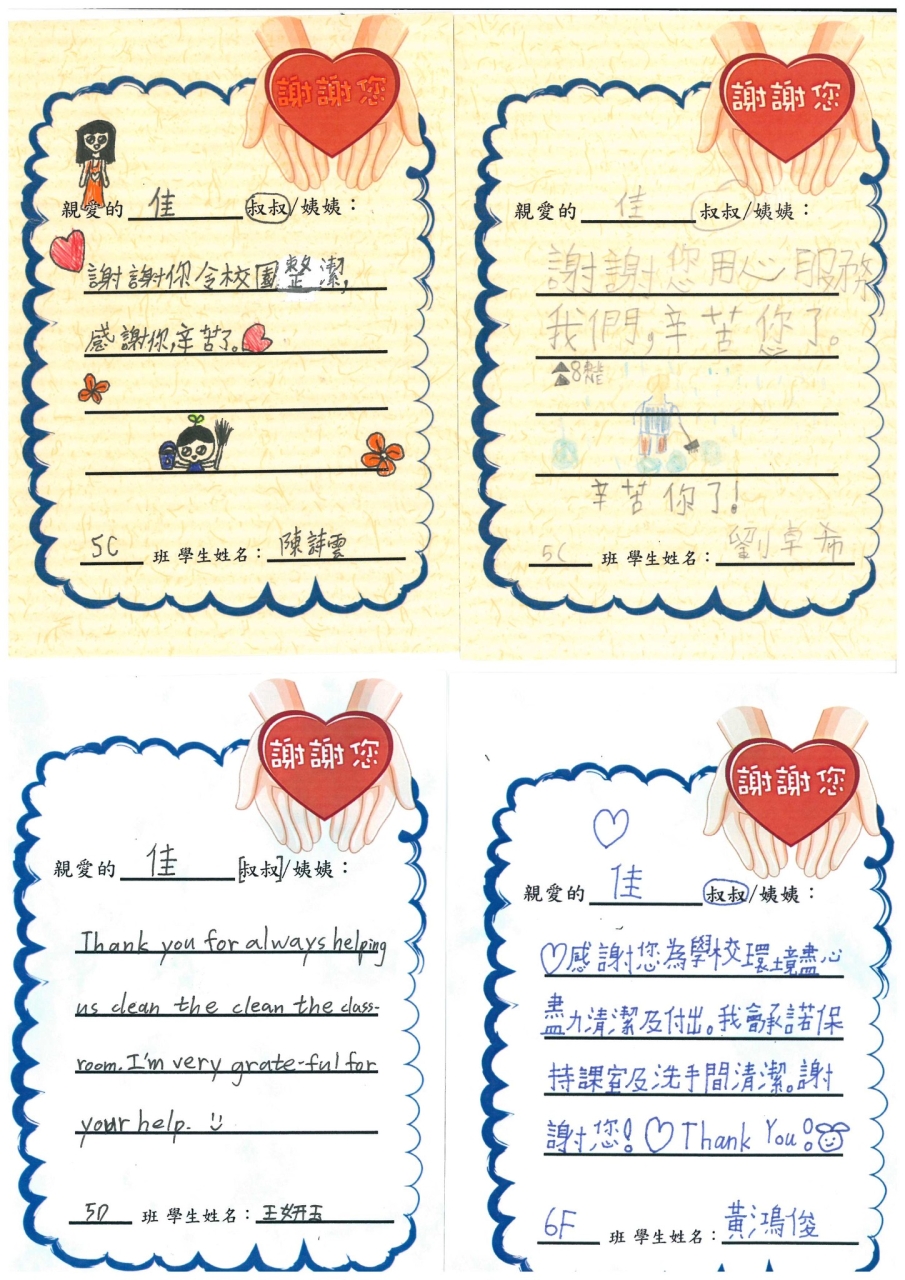 謝謝您
親愛的 佳 叔叔/姨姨：
謝謝你令校園整潔，
感謝你，辛苦了。
5C 班 學生姓名： 陳詩雲
謝謝您
親愛的 佳 叔叔/姨姨：
謝謝您用心服務
我們，辛苦您了。
辛苦你了！
5C 班 學生姓名： 劉卓希
謝謝您
親愛的 佳 [叔叔]/姨姨：
Thank you for always helping
us clean the clean the class-
room. I'm very grate-ful for
your help.
5D 班 學生姓名： 王妍玉
謝謝您
親愛的 佳 叔叔/姨姨：
感謝您為學校環境盡心
盡力清潔及付出。我會承諾保
持課室及洗手間清潔。謝
謝您！ Thank You!
6F 班 學生姓名： 黃鴻俊